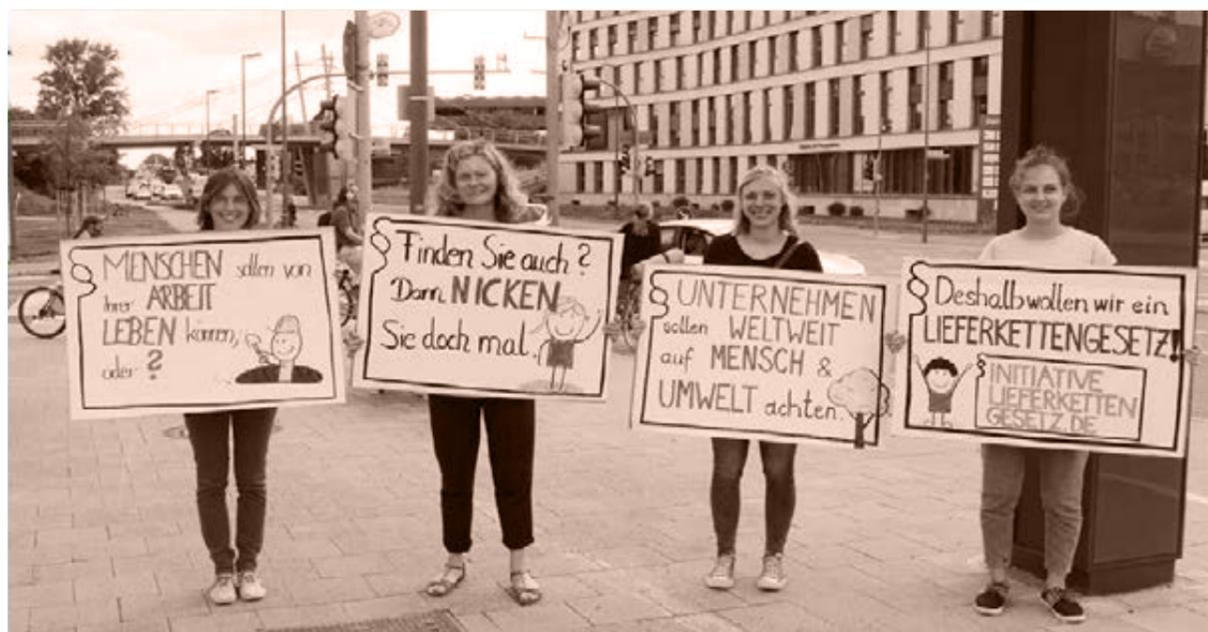 § MENSCHEN sollen von
ihrer ARBEIT
LEBEN können,
oder?
§ Finden Sie auch?
Dann NICKEN
Sie doch mal.
§ UNTERNEHMEN
sollen WELTWEIT
auf MENSCH &
UMWELT achten.
§ Deshalb wollen wir ein
LIEFERKETTENGESETZ!
§ INITIATIVE
LIEFERKETTEN
GESETZ.DE